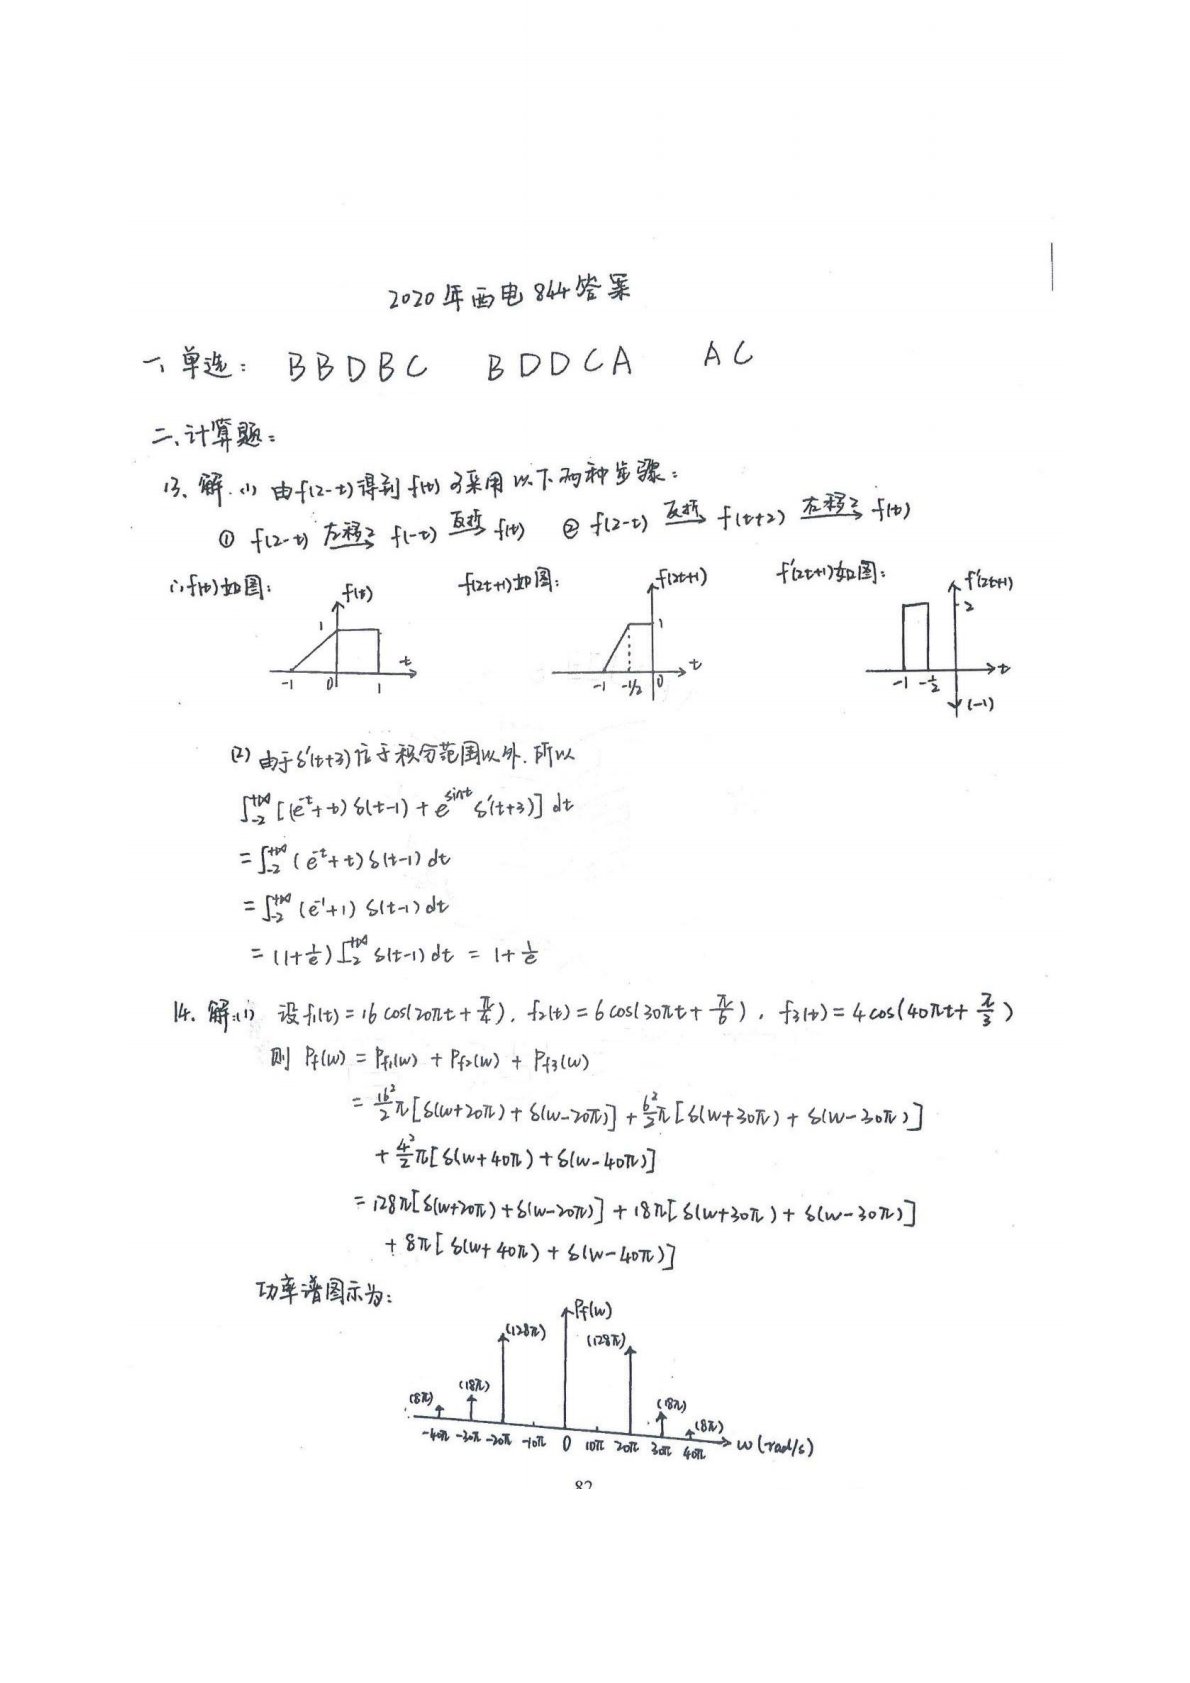 2020年西电844答案
一、单选: BBDBC BDDCA AC
二、计算题:
13、解.(1) 由f(2-t)得到f(t)可采用以下两种步骤:
① f(2-t) 左移2→ f(-t) 反折→ f(t) ② f(2-t) 反折→ f(t+2) 右移2→ f(t)
∴f(t)如图: f(2t+1)如图: f'(2t+1)如图:
f(t) f(2t+1) f'(2t+1)
1 1 2
t t t
-1 0 1 -1 -1/2 0 -1 -1/2 (-1)
(2) 由于δ'(t+3)位于积分范围以外.所以
∫_{-2}^{+∞} [(e^{-t}+t)δ(t-1) + e^{sint} δ'(t+3)] dt
= ∫_{-2}^{+∞} (e^{-t}+t)δ(t-1) dt
= ∫_{-2}^{+∞} (e^{-1}+1) δ(t-1) dt
= (1+1/e) ∫_{-2}^{+∞} δ(t-1) dt = 1+1/e
14. 解:(1) 设f₁(t)=16cos(20πt+π/4), f₂(t)=6cos(30πt+π/6), f₃(t)=4cos(40πt+π/3)
则 Pf(w) = Pf₁(w) + Pf₂(w) + Pf₃(w)
= 16²/2 π[δ(w+20π)+δ(w-20π)] + 6²/2 π[δ(w+30π)+δ(w-30π)]
+ 4²/2 π[δ(w+40π)+δ(w-40π)]
= 128π[δ(w+20π)+δ(w-20π)] + 18π[δ(w+30π)+δ(w-30π)]
+ 8π[δ(w+40π)+δ(w-40π)]
功率谱图示为:
Pf(w)
(128π) (128π)
(8π) (18π) (18π) (8π)
-40π -30π -20π -10π 0 10π 20π 30π 40π w(rad/s)
82